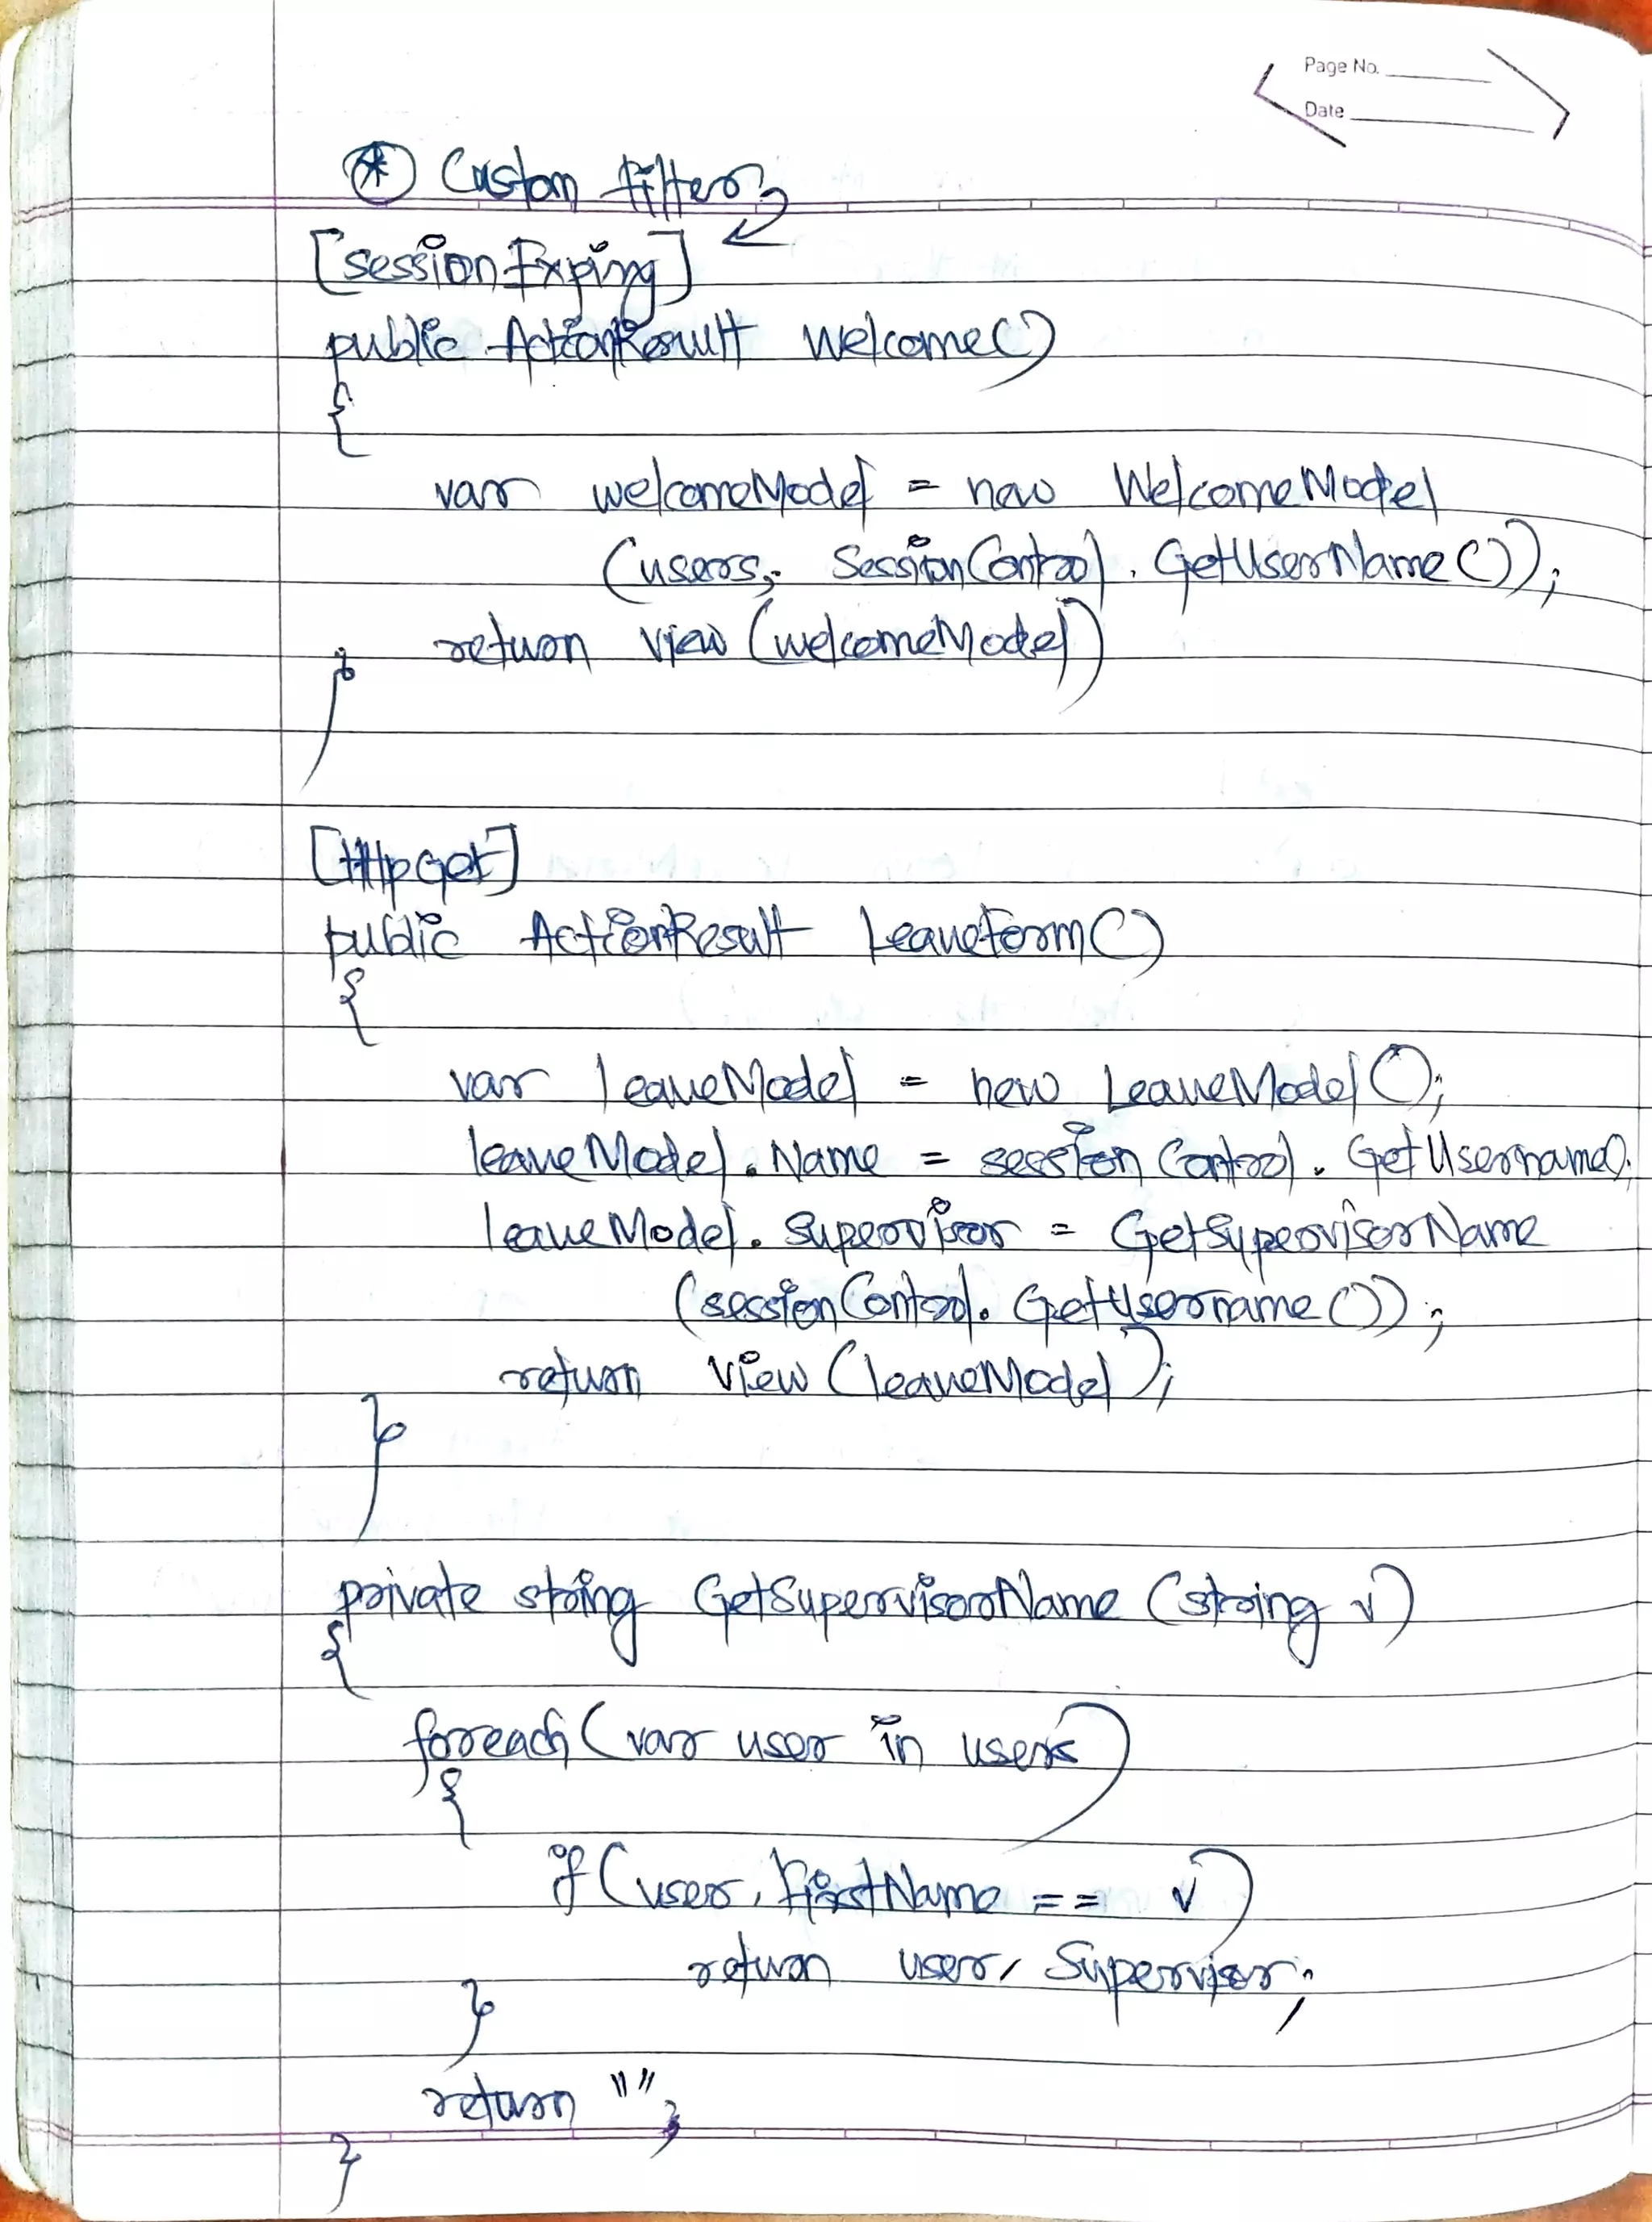 Page No.
Date
* Custom filter
[sessionExping]
public ActionResult Welcome()
{
var welcomeModel = new WelcomeModel
(users, SessionControl.GetUserName());
return View(welcomeModel)
}
[HttpGet]
public ActionResult LeaveForm()
{
var leaveModel = new LeaveModel();
leaveModel.Name = sessionControl.GetUsername();
leaveModel.Supervisor = GetSupervisorName
(sessionControl.GetUsername());
return View(leaveModel);
}
private string GetSupervisorName(string v)
{
foreach(var user in users)
{
if(user.FirstName == v)
return user.Supervisor;
}
return "";
}